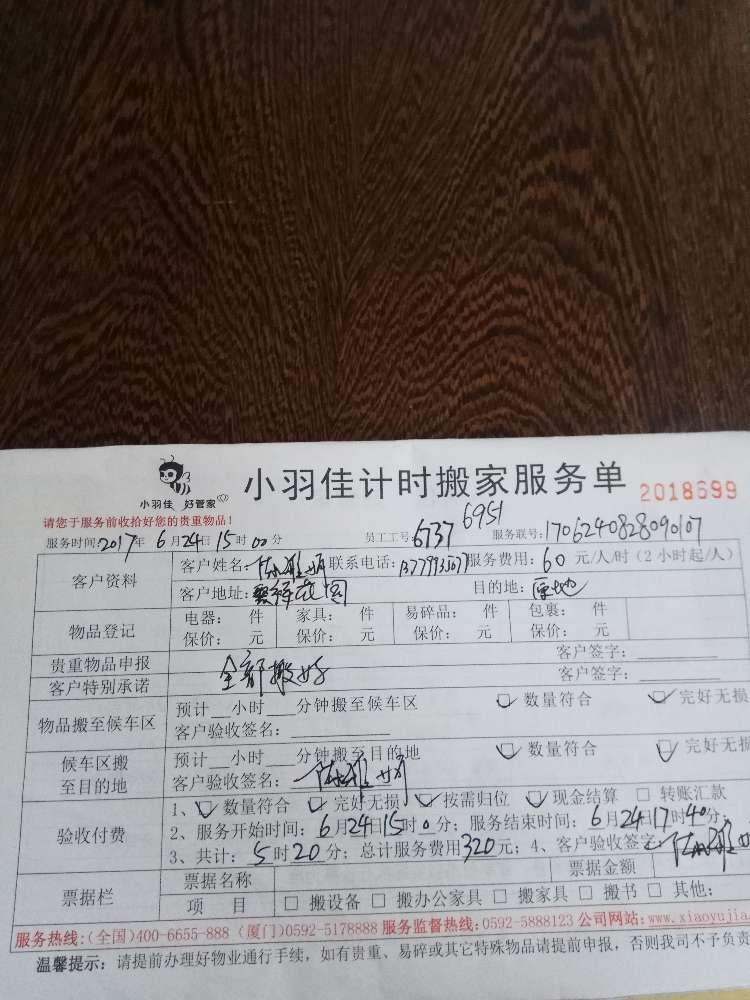 小羽佳 好管家
小羽佳计时搬家服务单
2018699
请您于服务前收拾好您的贵重物品！
6951
服务时间:2017年 6月24日15时00分 员工工号:6737 服务联号:1706240828090107
客户资料 客户姓名: 联系电话: 服务费用: 60 元/人/时 (2小时起/人)
客户地址: 花园 目的地: 原地
物品登记 电器： 件 家具： 件 易碎品： 件 包裹： 件
保价： 元 保价： 元 保价： 元 保价： 元
贵重物品申报 客户签字：
客户特别承诺 全部搬好 客户签字：
物品搬至候车区 预计__小时___分钟搬至候车区 数量符合 完好无损
客户验收签名：
候车区搬至目的地 预计__小时___分钟搬至目的地 数量符合 完好无损
客户验收签名：
验收付费 1、 数量符合 完好无损 按需归位 现金结算 □ 转账汇款
2、服务开始时间：6月24日15时0分；服务结束时间：6月24日17时40分；
3、共计：5时20分；总计服务费用320元；4、客户验收签字：
票据栏 票据名称 票据金额
项 目 □ 搬设备 □ 搬办公家具 □ 搬家具 □ 搬书 □ 其他:
服务热线:(全国)400-6655-888 (厦门)0592-5178888 服务监督热线:0592-5888123 公司网站:www.xiaoyujia
温馨提示：请提前办理好物业通行手续，如有贵重、易碎或其它特殊物品请提前申报，否则我司不予负责